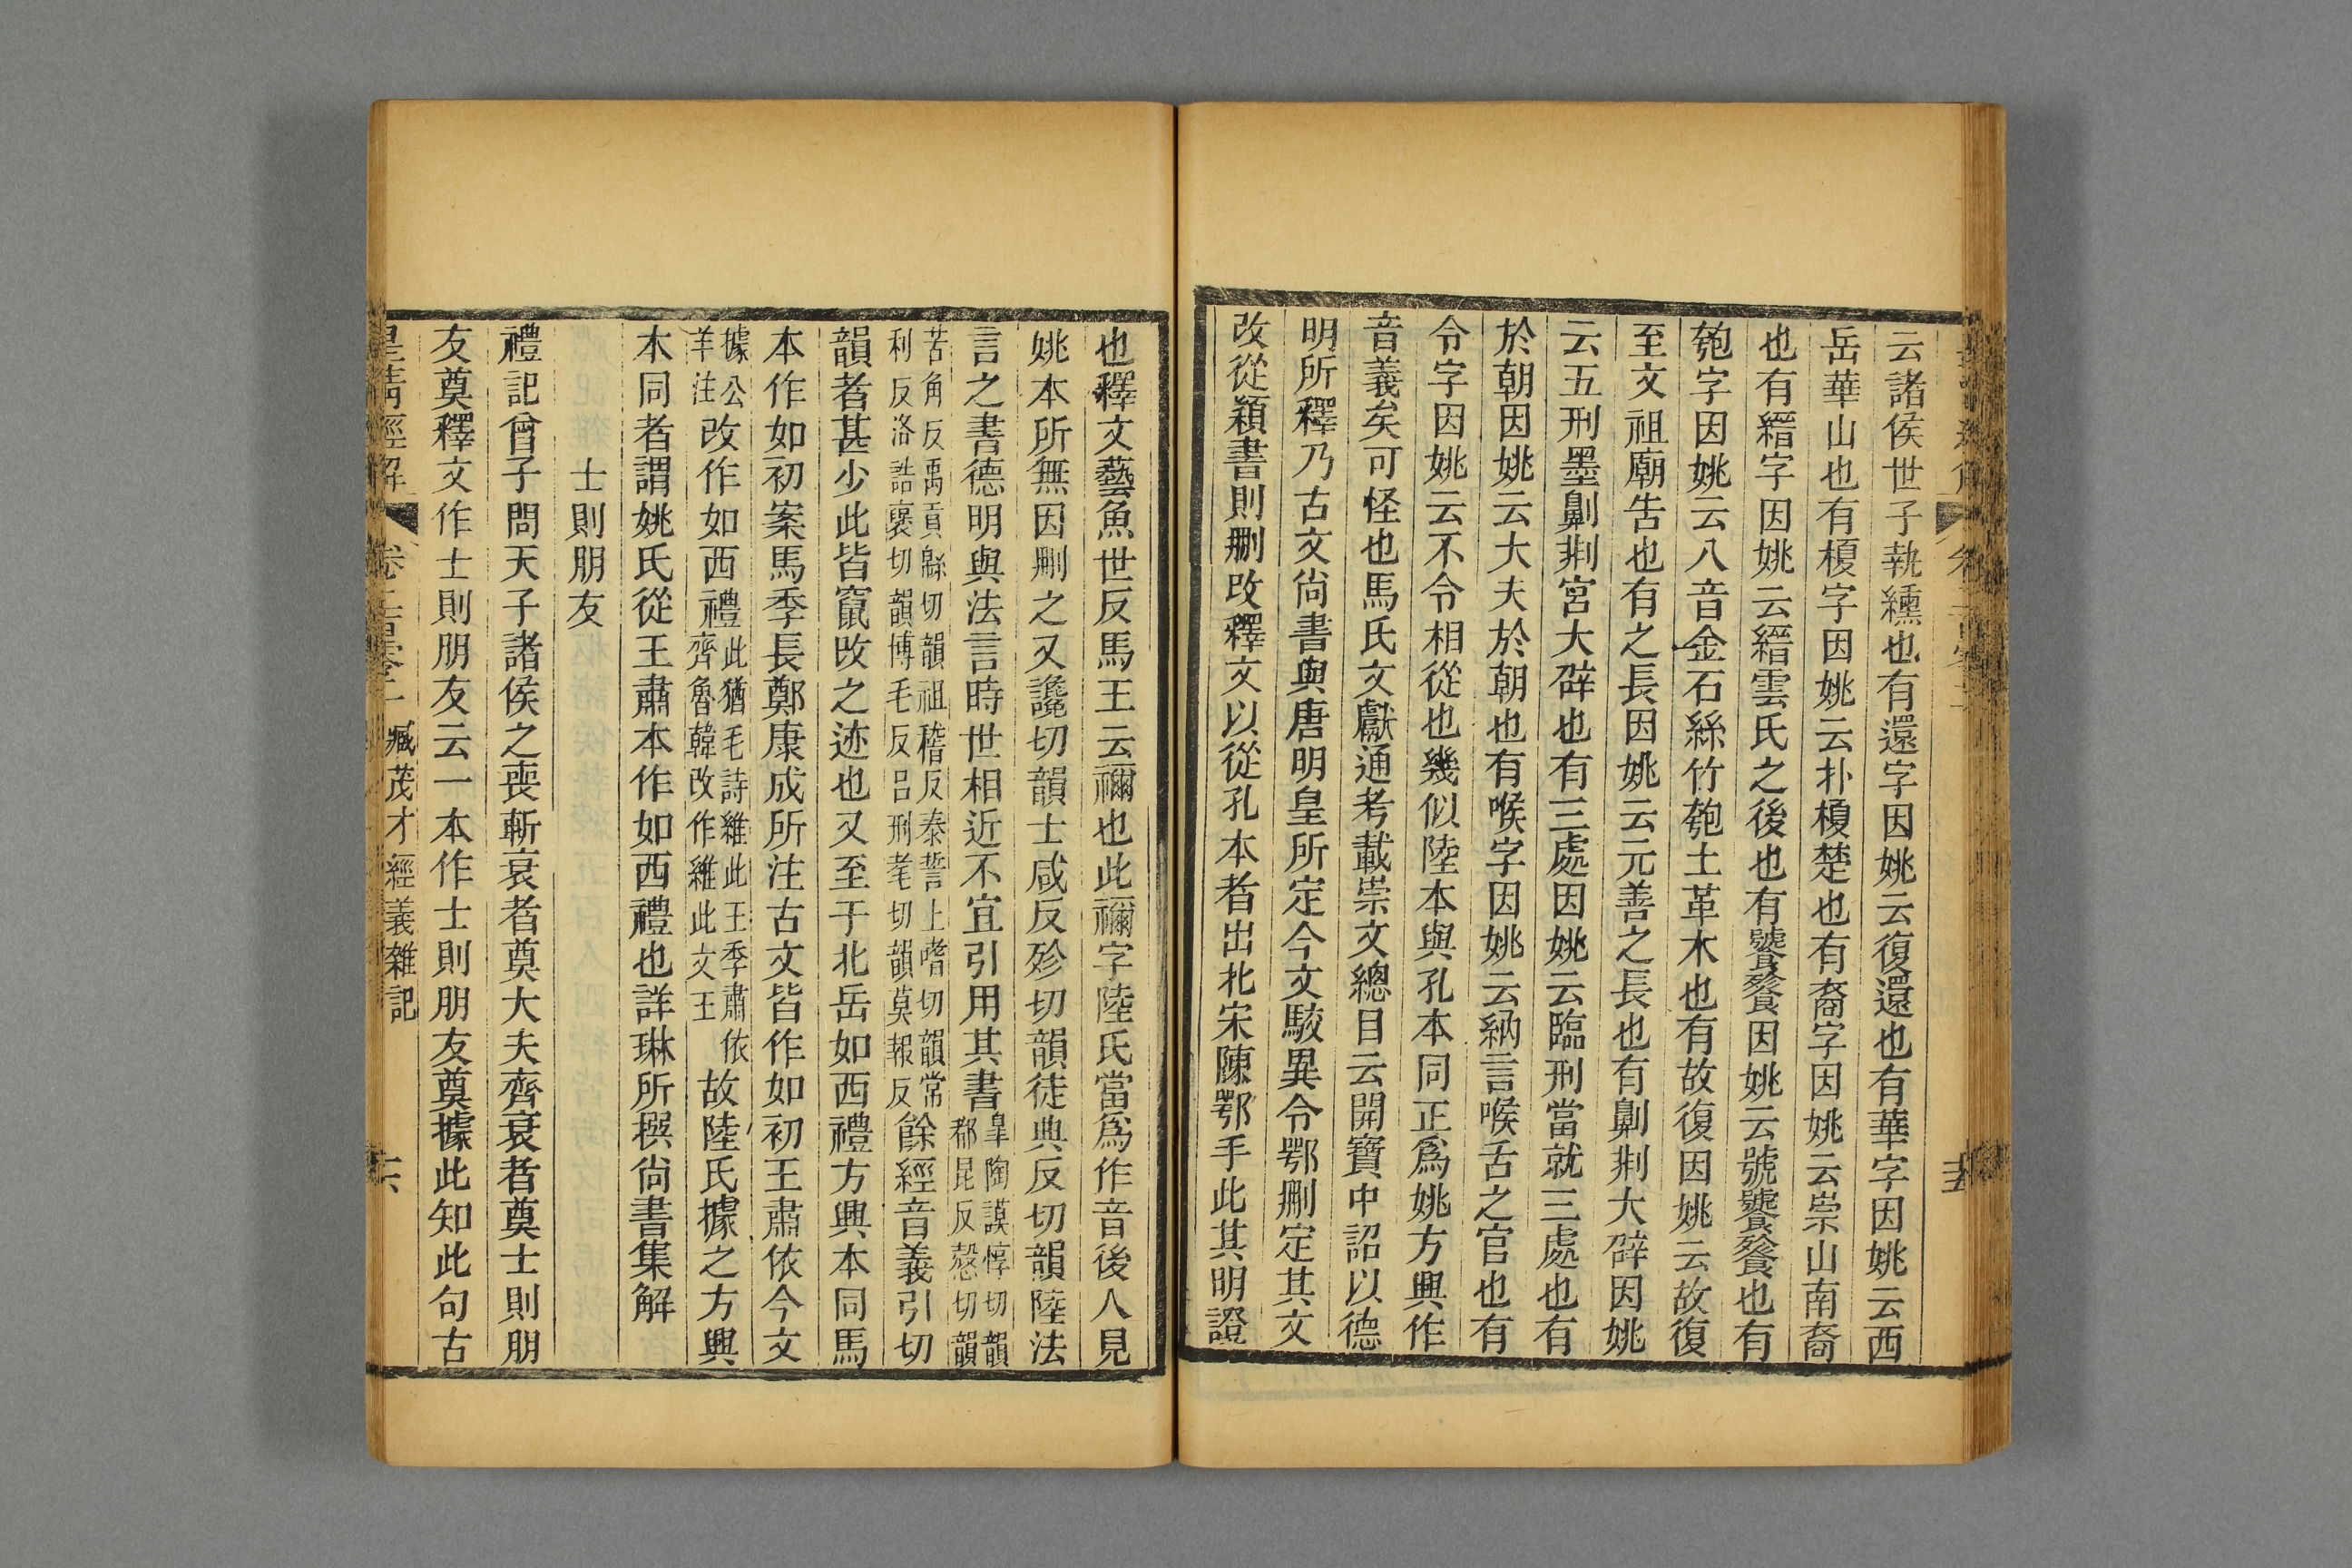 云諸侯世子執纁也有還字因姚云復還也有華字因姚云西
岳華山也有榎字因姚云朴榎楚也有裔字因姚云崇山南裔
也有縉字因姚云縉雲氏之後也有饕餮因姚云號饕餮也有
匏字因姚云八音金石絲竹匏土革木也有故復因姚云故復
至文祖廟告也有之長因姚云元善之長也有劓剕大辟因姚
云五刑墨劓剕宮大辟也有三處因姚云臨刑當就三處也有
於朝因姚云大夫於朝也有喉字因姚云納言喉舌之官也有
令字因姚云不令相從也幾似陸本與孔本同正爲姚方興作
音義矣可怪也馬氏文獻通考載崇文總目云開寶中詔以德
明所釋乃古文尚書與唐明皇所定今文駮異令鄂刪定其文
改從穎書則刪改釋文以從孔本者出北宋陳鄂手此其明證
也釋文藝魚世反馬王云禰也此禰字陸氏當爲作音後人見
姚本所無因刪之又讒切韻士咸反殄切韻徒典反切韻陸法
言之書德明與法言時世相近不宜引用其書皐陶謨惇切韻
都昆反愨切韻
苦角反禹貢緜切韻祖稽反泰誓上嗜切韻常
利反洛誥襃切韻博毛反呂刑耄切韻莫報反餘經音義引切
韻者甚少此皆竄改之迹也又至于北岳如西禮方興本同馬
本作如初案馬季長鄭康成所注古文皆作如初王肅依今文
據公
羊注改作如西禮此猶毛詩維此王季肅依
齊魯韓改作維此文王故陸氏據之方興
木同者謂姚氏從王肅本作如西禮也詳琳所撰尚書集解
士則朋友
禮記曾子問天子諸侯之喪斬衰者奠大夫齊衰者奠士則朋
友奠釋文作士則朋友云一本作士則朋友奠據此知此句古
皇清經解 臧茂才經義雜記 六